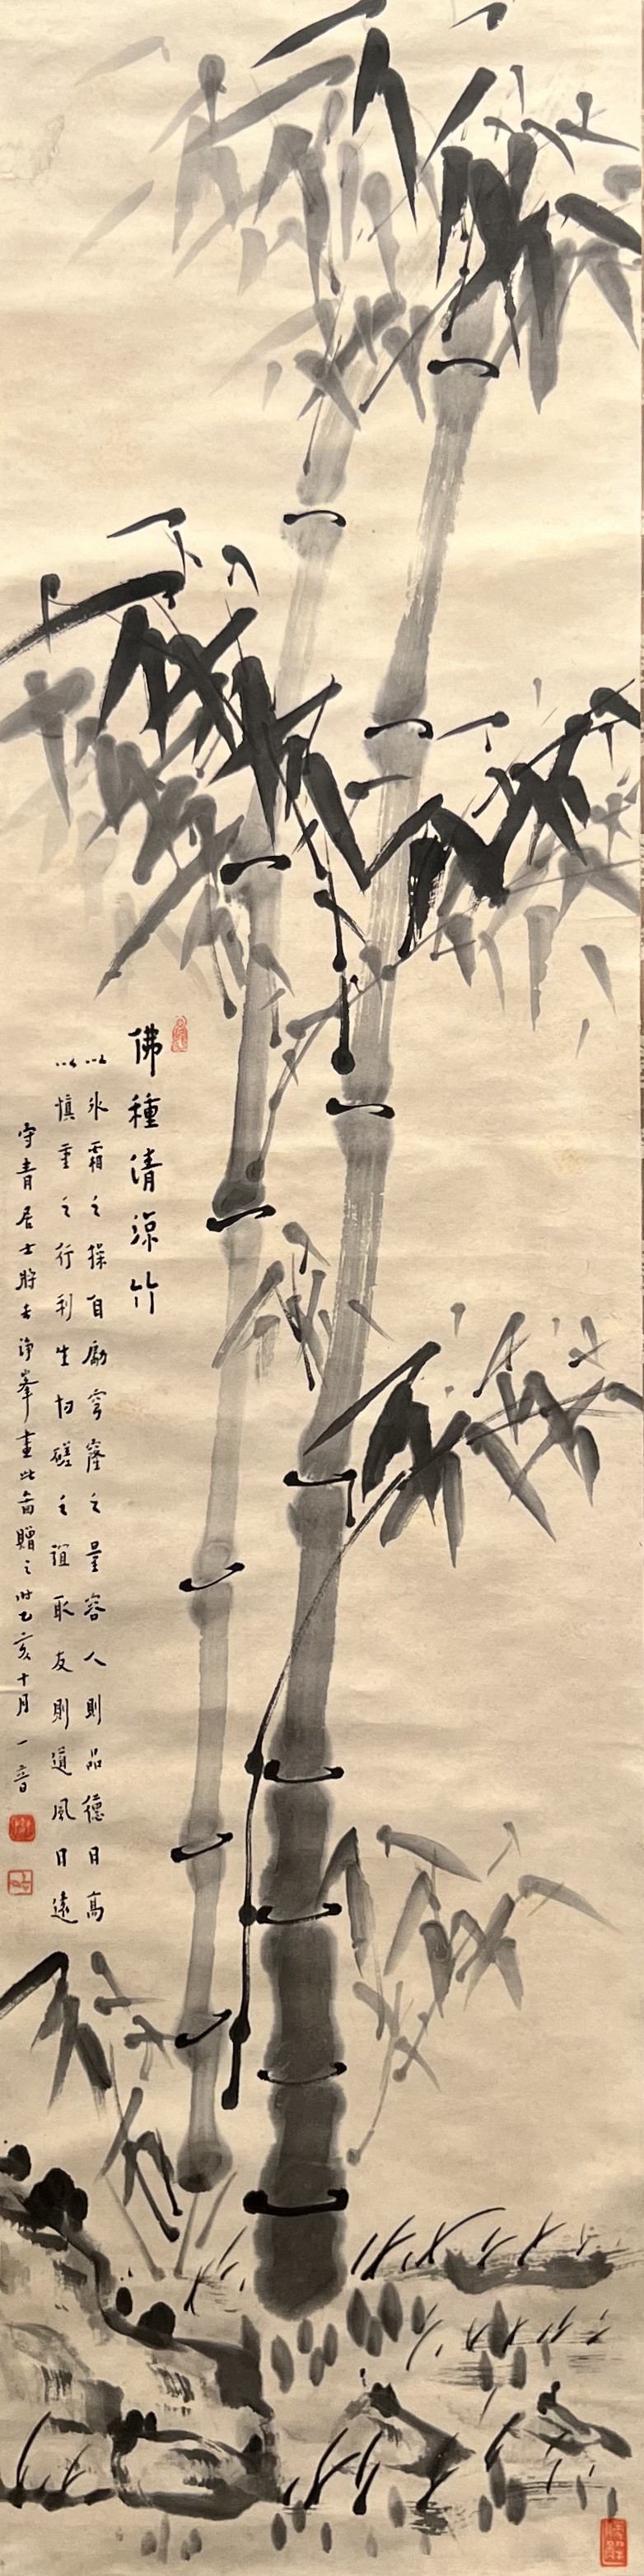 佛種清涼竹
以冰霜之操自勵穹窿之量容人則品德日高
以慎重之行利生切磋之誼取友則道風日遠
守青居士將去淨峯畫此畗贈之時乙亥十月一音